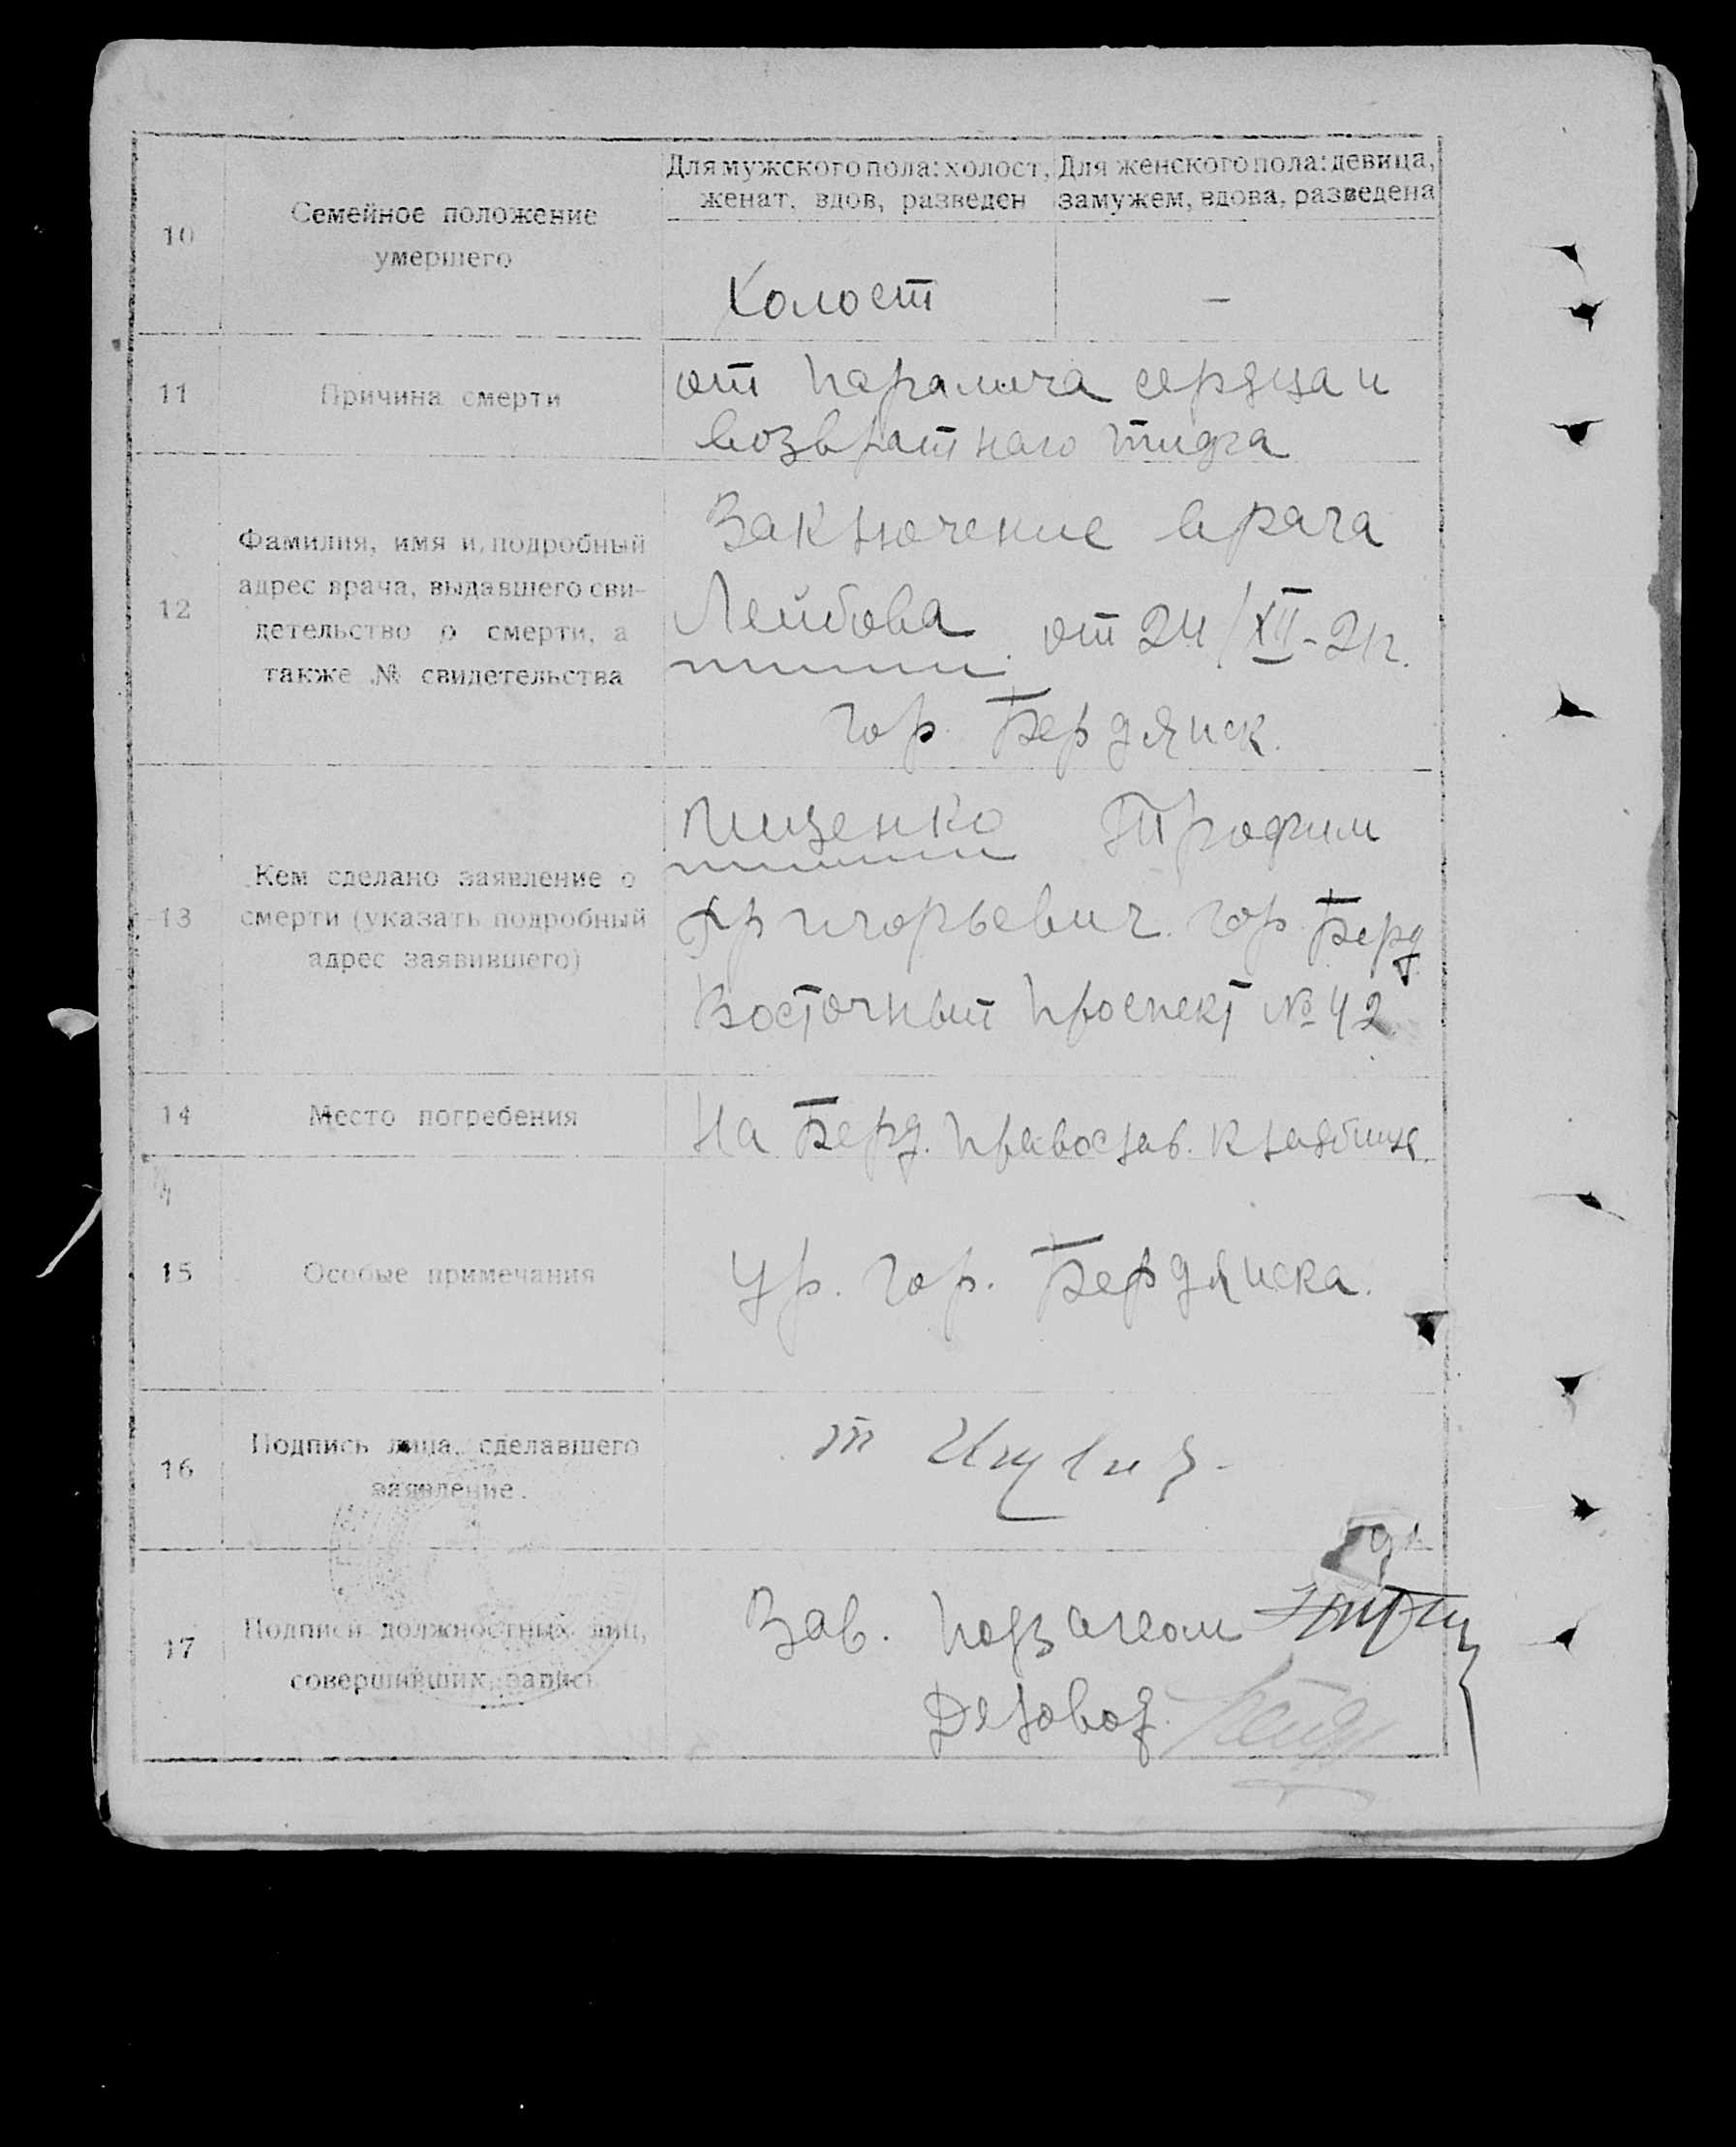 10
Семейное положение
умершего
Для мужского пола: холост,
женат, вдов, разведен
Для женского пола: девица,
замужем, вдова, разведена
Холост
—
11
Причина смерти
от паралича сердца и
возвратного тифа
12
Фамилия, имя и подробный
адрес врача, выдавшего сви-
детельство о смерти, а
также № свидетельства
Заключение врача
Лейбова от 24/XII-21г.
гор. Бердянск.
13
Кем сделано заявление о
смерти (указать подробный
адрес заявившего)
Трофим
Григорьевич. гор. Берд
Восточный проспект № 42
14
Место погребения
На Берд. православ. кладбище
15
Особые примечания
Ур. гор. Бердянска.
16
Подпись лица, сделавшего
заявление.
17
Подписи должностных лиц,
совершивших запись
Зав. подзагсом
Деловод.